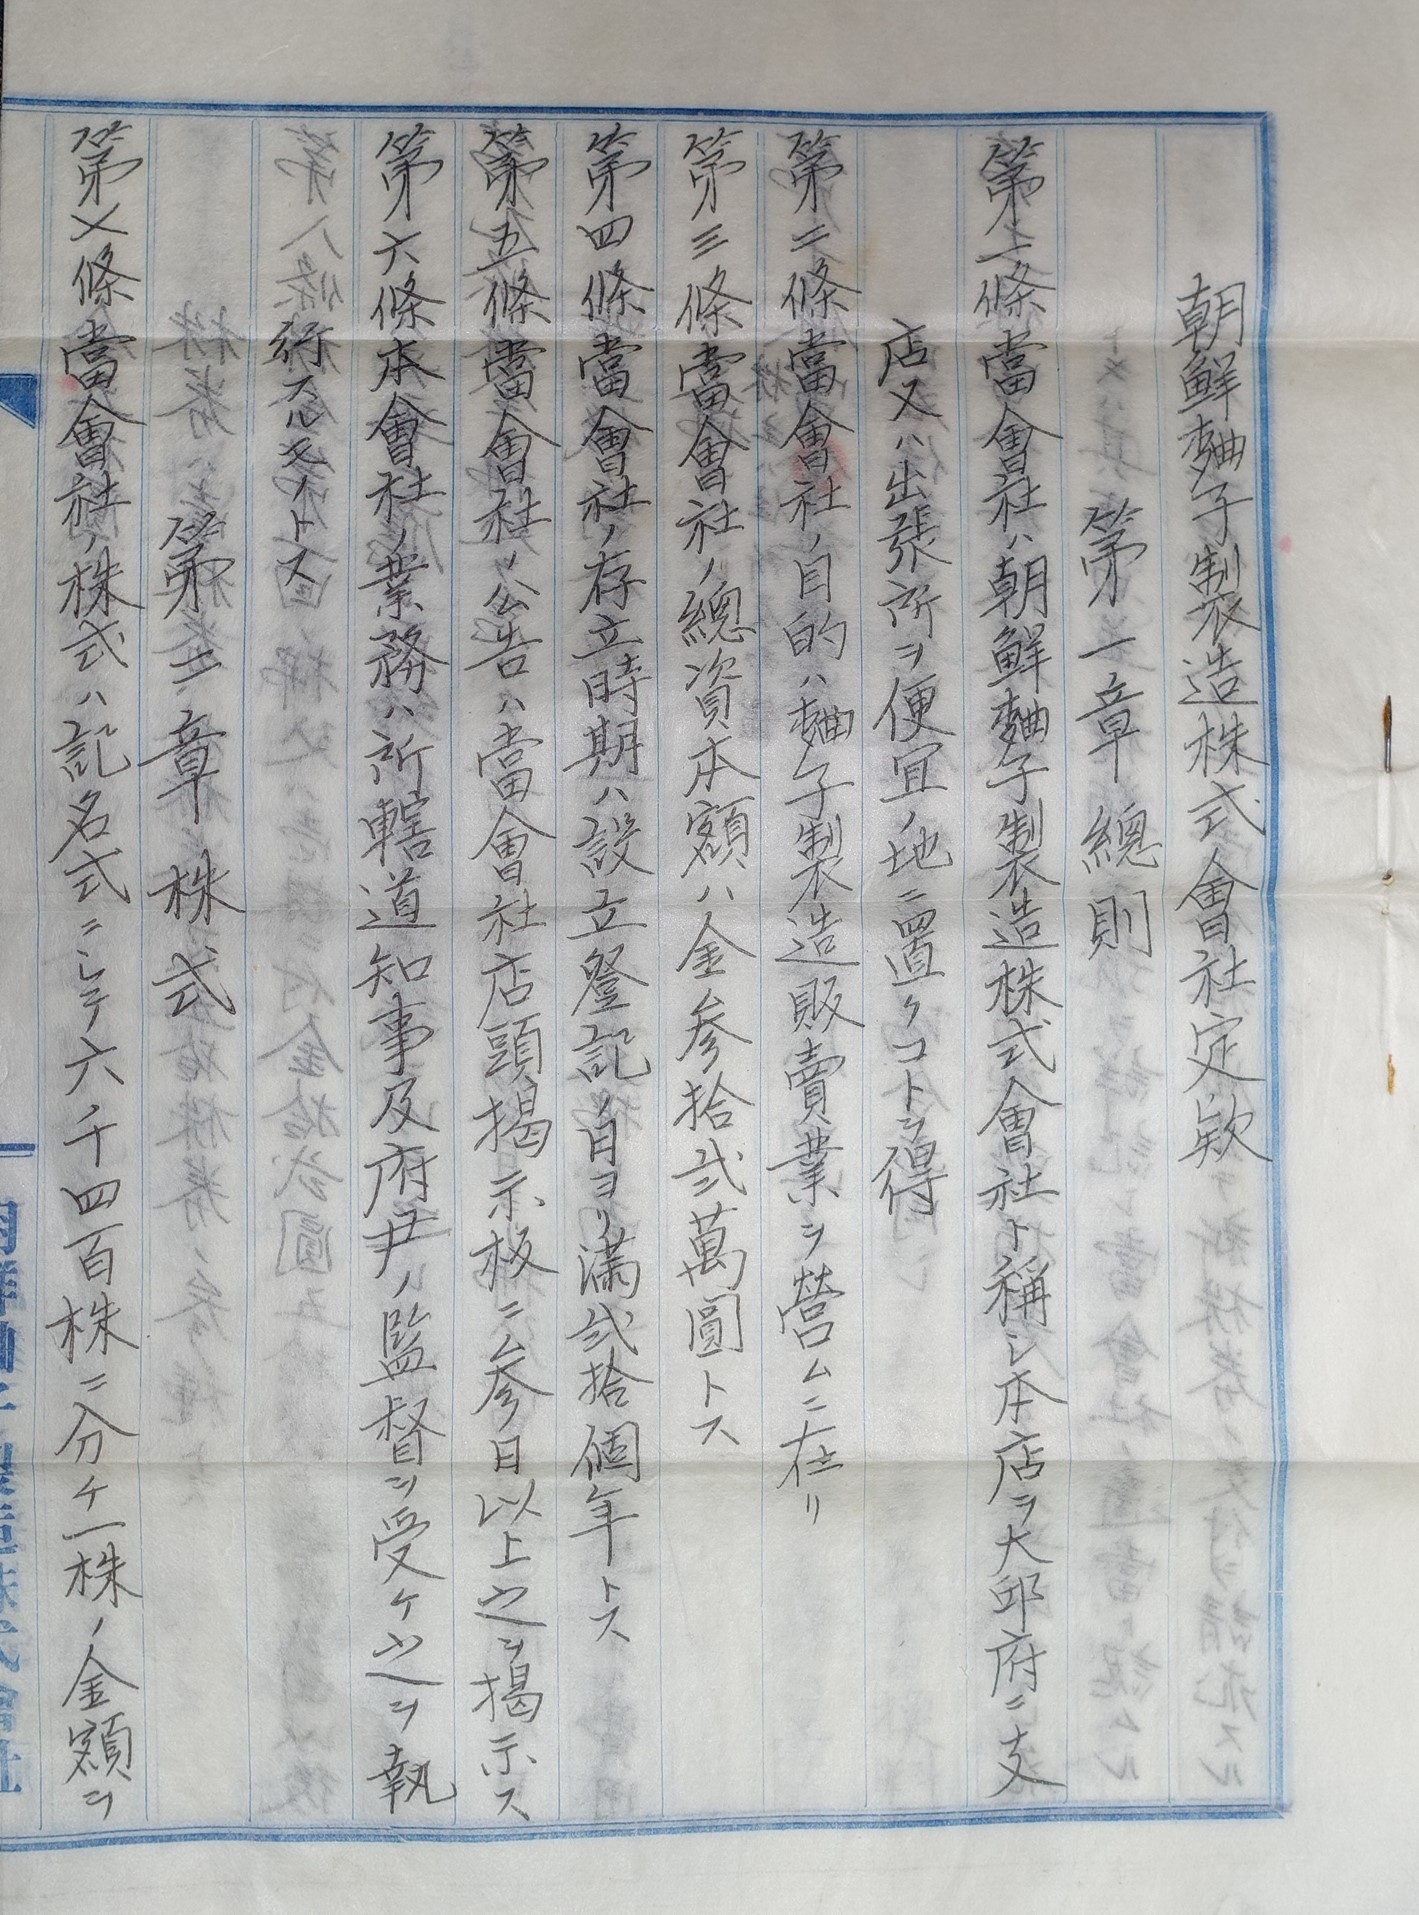 朝鮮麯子製造株式會社定欵
第一章 總則
第一條當會社ハ朝鮮麯子製造株式會社ト稱シ本店ヲ大邱府ニ支
店又ハ出張所ヲ便宜ノ地ニ置クコトヲ得
第二條當會社ノ目的ハ麯子製造販賣業ヲ營ムニ在リ
第三條當會社ノ總資本額ハ金参拾弍萬圓トス
第四條當會社ノ存立時期ハ設立登記ノ日ヨリ滿弍拾個年トス
第五條當會社ノ公告ハ當會社店頭揭示板ニ参日以上之ヲ揭示ス
第六條本會社ノ業務ハ所轄道知事及府尹ノ監督ヲ受ケ之ヲ執
行スルモノトス
第二章 株式
第七條當會社ノ株式ハ記名式ニシテ六千四百株ニ分ケ一株ノ金額ヲ